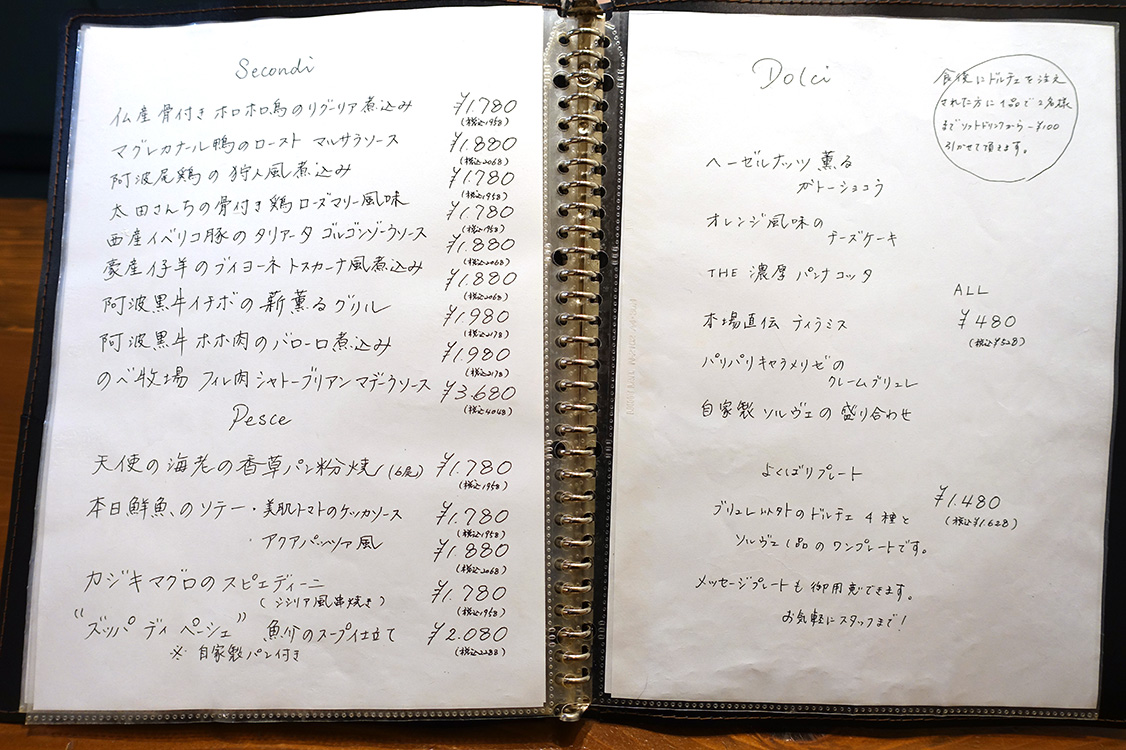 Secondi
仏産骨付きホロホロ鳥のリグリア煮込み ¥1.780
(税込1958)
マグレカナール鴨のロースト マルサラソース ¥1.880
(税込2068)
阿波尾鶏の狩人風煮込み ¥1.780
(税込1958)
太田さんちの骨付き鶏ローズマリー風味 ¥1.780
(税込1958)
西産イベリコ豚のタリアータ ゴルゴンゾーラソース ¥1.880
(税込2068)
豪産仔羊のブイヨーネ トスカーナ風煮込み ¥1.880
(税込2068)
阿波黒牛イチボの薪薫るグリル ¥1.980
(税込2178)
阿波黒牛ホホ肉のバローロ煮込み ¥1.980
(税込2178)
のべ牧場 フィレ肉シャトーブリアンマデーラソース ¥3.680
(税込4048)
Pesce
天使の海老の香草パン粉焼き(6尾) ¥1.780
(税込1958)
本日鮮魚のソテー・美肌トマトのケッカソース ¥1.780
(税込1958)
・アクアパッツァ風 ¥1.880
(税込2068)
カジキマグロのスピエディーニ ¥1.780
(シシリア風串焼き) (税込1958)
"ズッパ ディ ペーシェ" 魚介のスープ仕立て ¥2.080
※自家製パン付き (税込2288)
Dolci
食後にドルチェを注文
された方に1品で2名様
までソフトドリンクから-¥100
引かせて頂きます。
ヘーゼルナッツ薫る
ガトーショコラ
オレンジ風味の
チーズケーキ
THE 濃厚パンナコッタ
ALL
本場直伝 ティラミス ¥480
(税込¥528)
パリパリキャラメリゼの
クレームブリュレ
自家製ソルヴェの盛り合わせ
よくばりプレート
¥1.480
ブリュレ以外のドルチェ4種と (税込¥1.628)
ソルヴェ1品のワンプレートです。
メッセージプレートも御用意できます。
お気軽にスタッフまで!